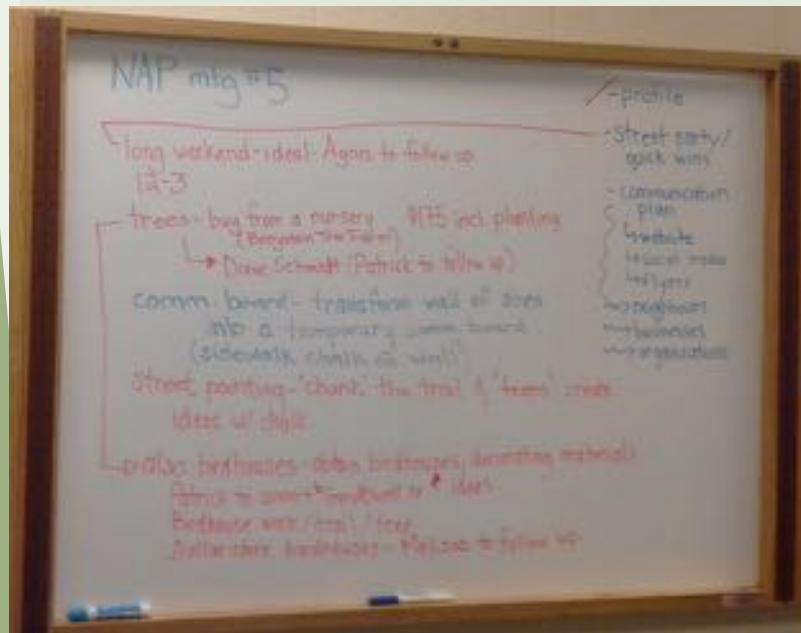 NAP mtg #5
long weekend - ideal - Agnes to follow up
12-3
trees - buy from a nursery $175 incl. planting
(Benjamin Tree Farm)
Schmidt (Patrick to follow up)
comm board - transform wall of
into a temporary comm board
(sidewalk chalk on wall)
street painting - 'chunk' the trail & 'teams' create
ideas w/ chalk
birdhouses - obtain birdhouses, decorating materials
Patrick to ideas
Birdhouse walk/trail/tree
birdhouses - Melissa to follow up
- profile
- street party/
quick wins
- communication
plan
website
social media
flyers
neighbours
businesses
organizations